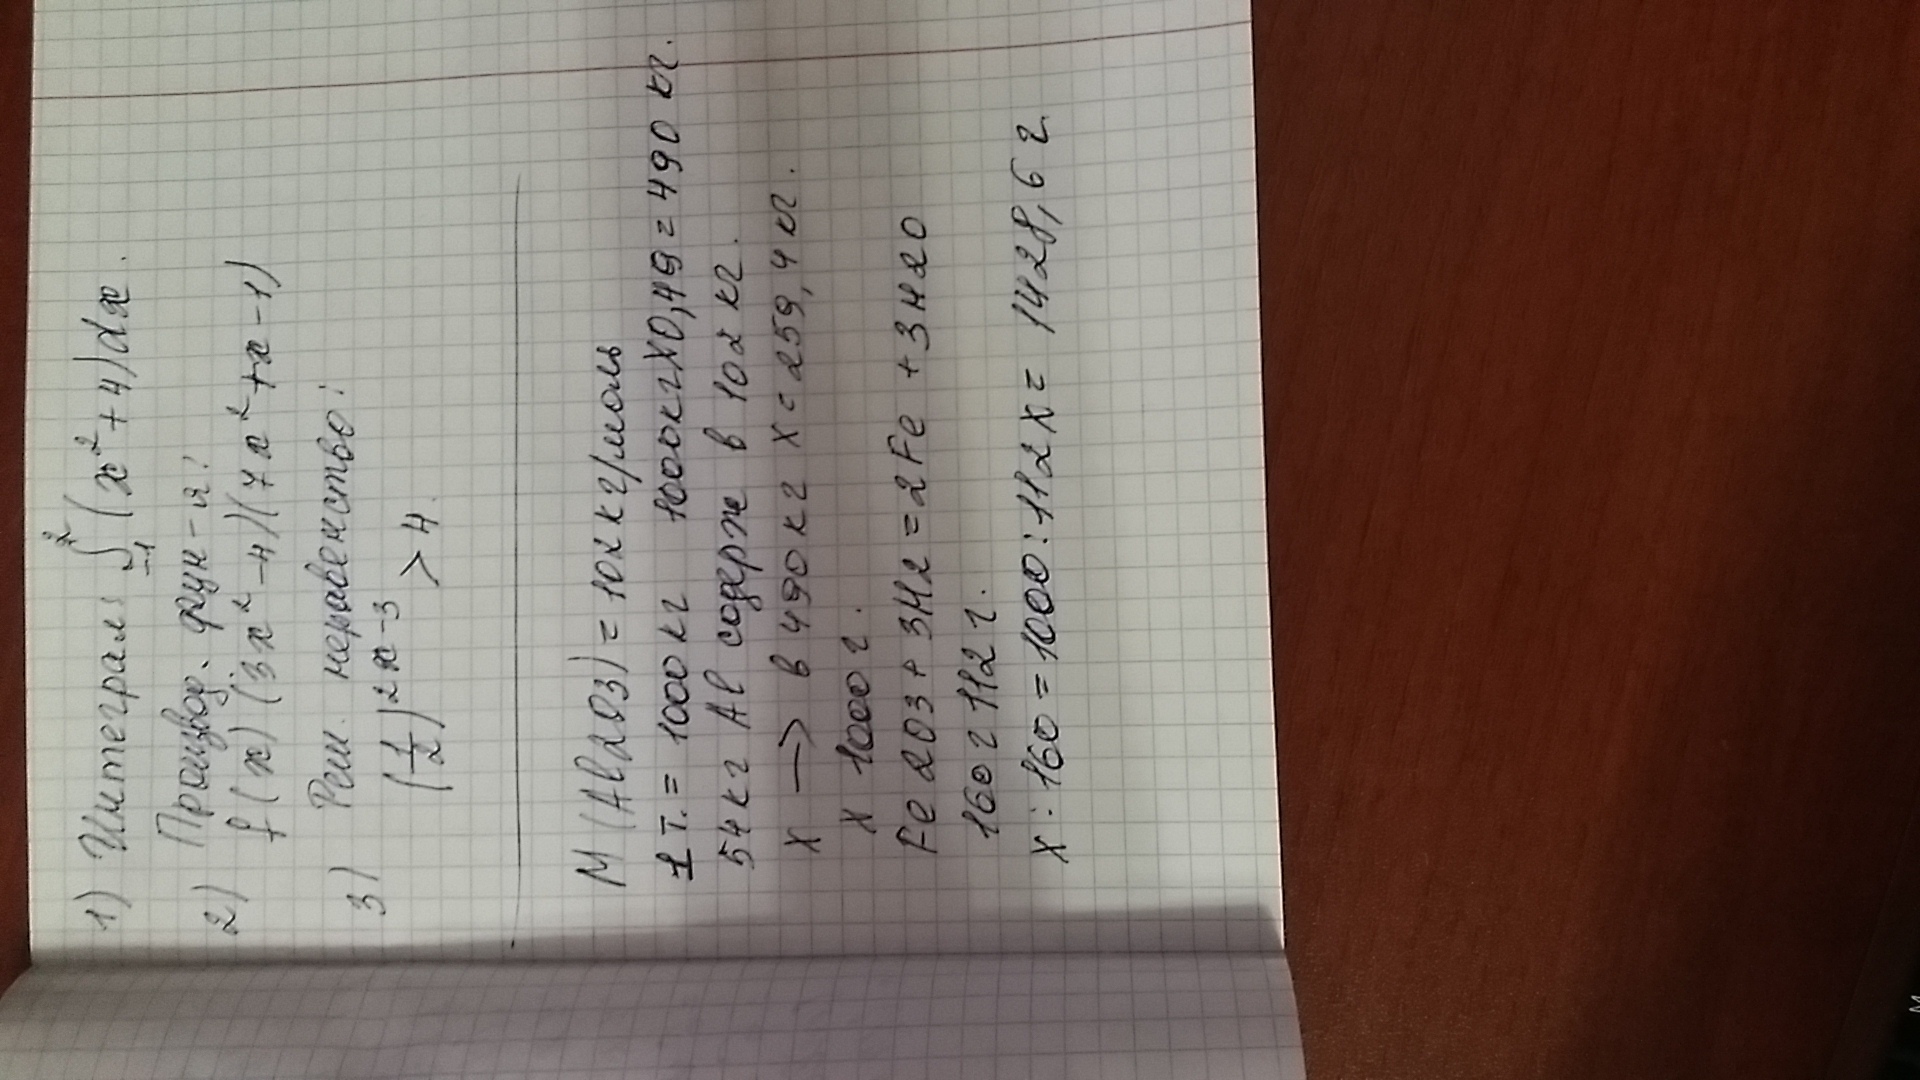 1) Интеграл: ∫₋₁² (x² + 4) dx.
Производ. фун-я:
2) f(x) (3x² - 4)(7x² + x - 1)
Реш. неравенство:
3) (1/2)^(2x-3) > 4.
M (Al2O3) = 102 кг/моль
1 т. = 1000 кг 1000 кг X 0,49 = 490 кг.
54 кг Al содерж в 102 кг.
X —> в 490 кг X = 259,4 кг.
X 1000 г.
Fe2O3 + 3H2 = 2Fe + 3H2O
160 г 112 г.
X : 160 = 1000 : 112 X = 1428,6 г
М